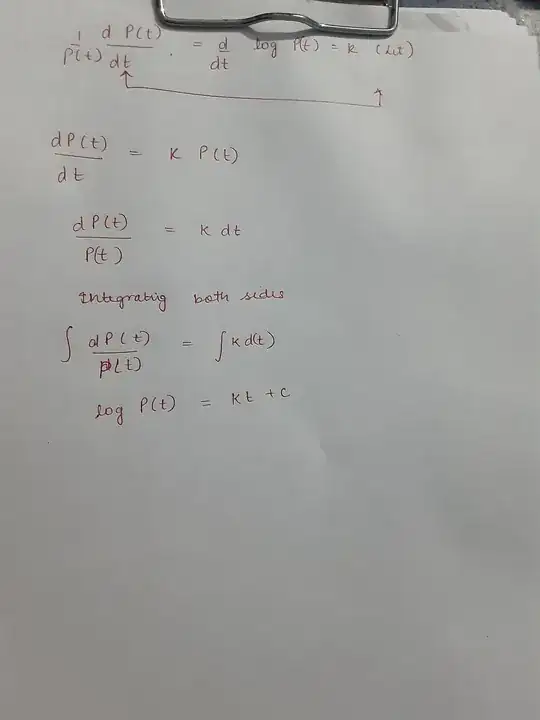 1/P(t) d P(t)/dt . = d/dt log P(t) = k (let)
dP(t)/dt = K P(t)
dP(t)/P(t) = K dt
Integrating both sides
∫ dP(t)/P(t) = ∫ K d(t)
log P(t) = Kt + C